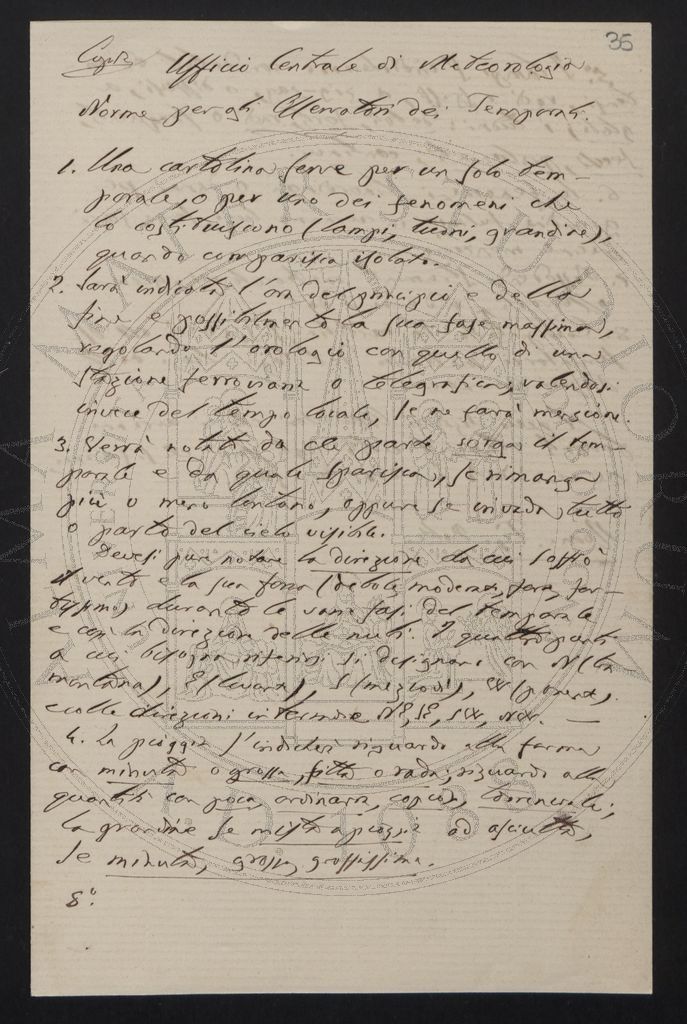 35
Copia Ufficio Centrale di Meteorologia
Norme per gli Osservatori dei Temporali.
1. Una cartolina serve per un solo tem-
porale, o per uno dei fenomeni che
lo costituiscono (lampi, tuoni, grandine),
quando comparisca isolato.
2. Sarà indicata l'ora del principio e della
fine e possibilmente la sua fase massima,
regolando l'orologio con quello di una
stazione ferroviaria o telegrafica; valendosi
invece del tempo locale, se ne farà menzione.
3. Verrà notato da che parte sorga il tem-
porale e da quale sparisca, se rimanga
più o meno lontano, oppure se invada tutto
o parte del cielo visibile.
Devesi pure notare la direzione da cui soffiò
il vento e la sua forza (debole, moderata, forte, for-
tissimo) durante le varie fasi del temporale
e così la direzione delle nubi. I quattro punti
a cui bisogna riferirsi si designano con N (tra
montana), E (levante), S (mezzodì), W (ponente),
e colle direzioni intermedie NE, SE, SW, NW. —
4. La pioggia s'indicherà riguardo alla forma
con minuta o grossa, fitta o rada; riguardo alla
quantità con poca, ordinaria, copiosa, torrenziale;
la grandine se mista a pioggia od asciutta,
se minuta, grossa, grossissima.
8°.